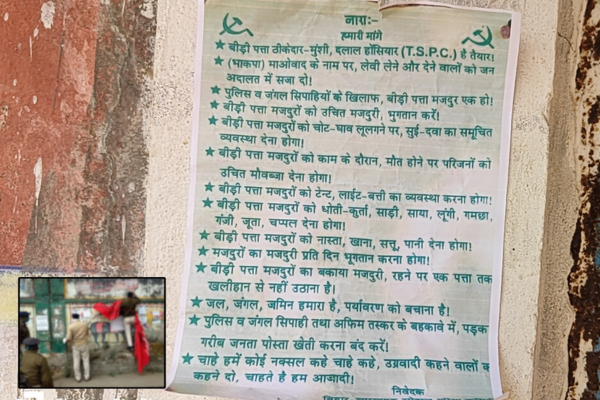 नाराः-
हमारी मांगे
★ बीड़ी पत्ता ठीकेदार-मुंशी, दलाल होंसियार (T.S.P.C.) है तैयार!
★ (भाकपा) माओवाद के नाम पर, लेवी लेने और देने वालों को जन
अदालत में सजा दो!
★ पुलिस व जंगल सिपाहियों के खिलाफ, बीड़ी पत्ता मजदुर एक हो!
★ बीड़ी पत्ता मजदुरों को उचित मजदुरी, भुगतान करें!
★ बीड़ी पत्ता मजदुरों को चोट-घाव लूलगने पर, सुई-दवा का समूचित
व्यवस्था देना होगा!
★ बीड़ी पत्ता मजदुरों को काम के दौरान, मौत होने पर परिजनों को
उचित मौवब्जा देना होगा!
★ बीड़ी पत्ता मजदुरों को टेन्ट, लाईट-बत्ती का व्यवस्था करना होगा!
★ बीड़ी पत्ता मजदुरों को धोती-कुर्ता, साड़ी, साया, लूंगी, गमछा,
गंजी, जूता, चप्पल देना होगा!
★ बीड़ी पत्ता मजदुरों को नास्ता, खाना, सत्तू, पानी देना होगा!
★ मजदुरों का मजदुरी प्रति दिन भूगतान करना होगा!
★ बीड़ी पत्ता मजदुरों का बकाया मजदुरी, रहने पर एक पत्ता तक
खलीहान से नहीं उठाना है!
★ जल, जंगल, जमिन हमारा है, पर्यावरण को बचाना है!
★ पुलिस व जंगल सिपाही तथा अफिम तस्कर के बहकावे में, पड़क
गरीब जनता पोस्ता खेती करना बंद करें!
★ चाहे हमें कोई नक्सल कहे चाहे कहे, उग्रवादी कहने वालों क
कहने दो, चाहते है हम आजादी!
निवेदक